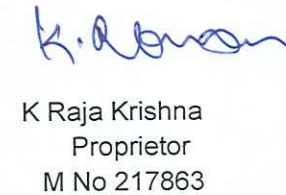 K Raja Krishna
Proprietor
M No 217863